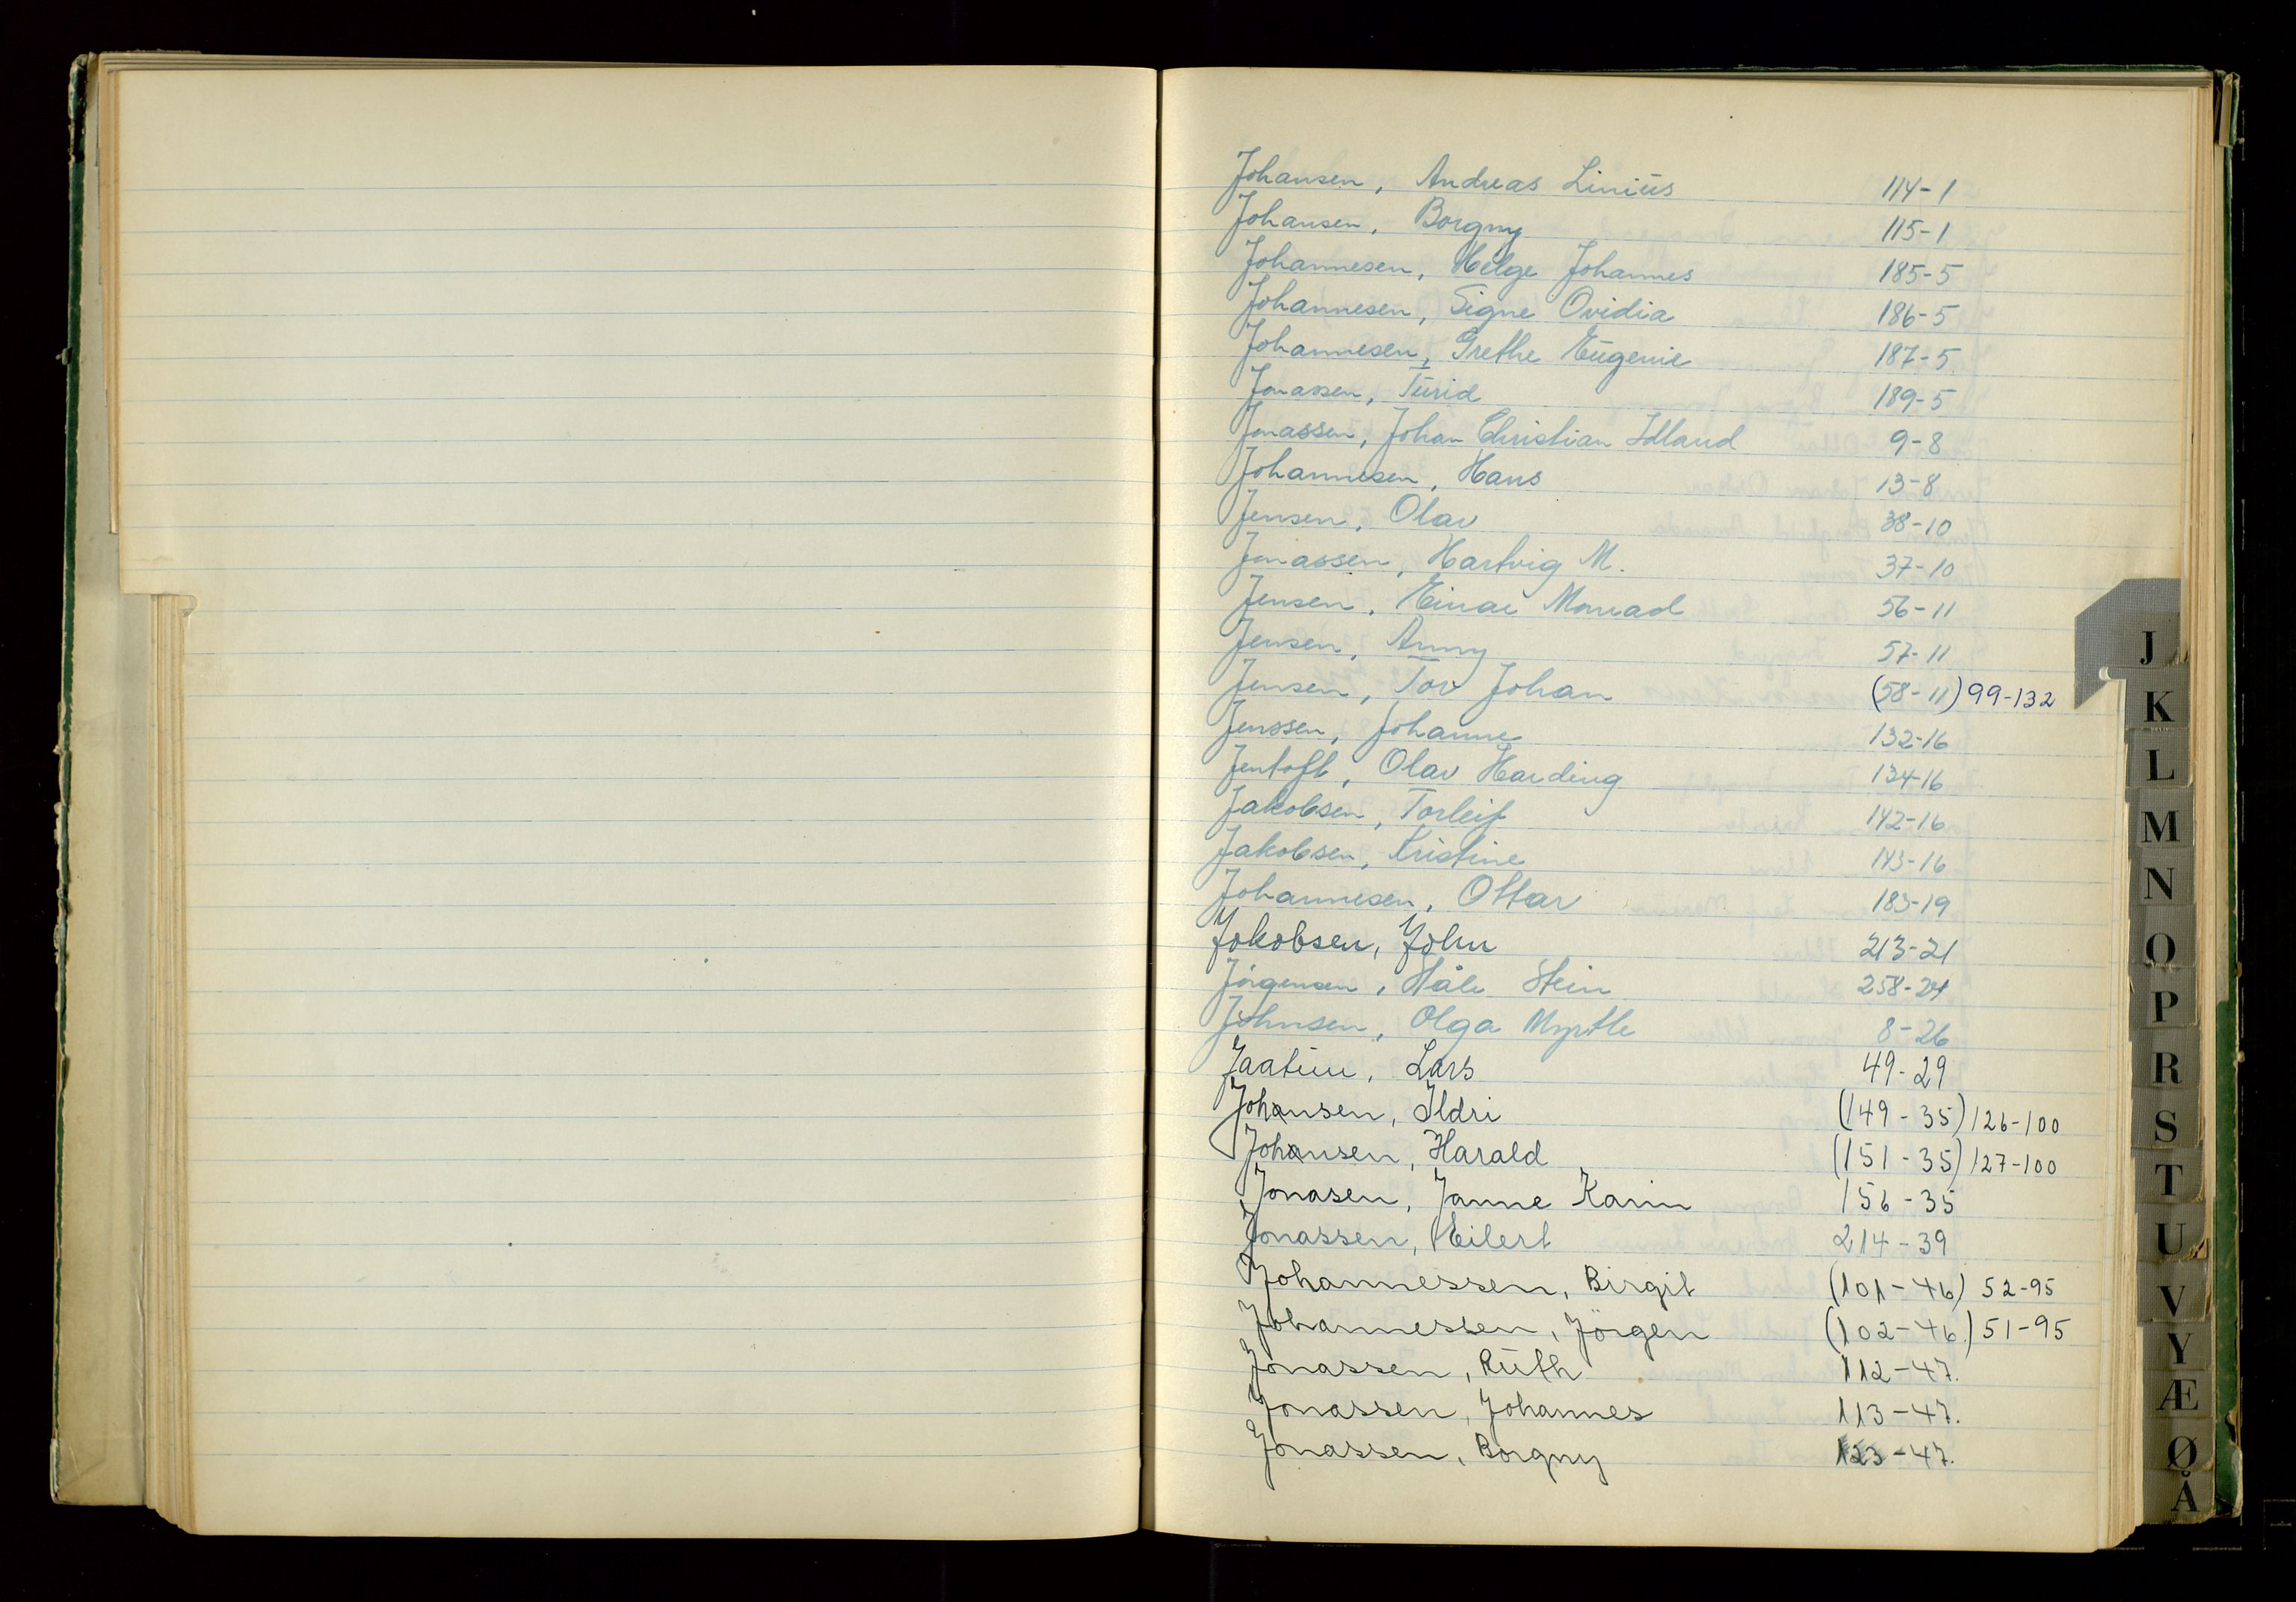 Johansen, Andreas Linius 114-1
Johansen, Borgny 115-1
Johannesen, Helge Johannes 185-5
Johannesen, Signe Ovidia 186-5
Johannesen, Grethe Eugenie 187-5
Jonassen, Turid 189-5
Jonassen, Johan Christian Idland 9-8
Johannesen, Hans 13-8
Jensen, Olav 38-10
Jonassen, Hartvig M. 37-10
Jensen, Einar Monrad 56-11
Jensen, Anny 57-11
Jensen, Tor Johan (58-11) 99-132
Jenssen, Johanne 132-16
Jentoft, Olav Harding 134-16
Jakobsen, Torleif 142-16
Jakobsen, Kristine 143-16
Johannesen, Ottar 183-19
Jakobsen, John 213-21
Jörgensen, Håle Stein 258-24
Johnsen, Olga Myrtle 8-26
Jaatun, Lars 49-29
Johansen, Ildri (149-35) 126-100
Johansen, Harald (151-35) 127-100
Jonasen, Janne Karin 156-35
Jonassen, Eilert 214-39
Johannessen, Birgit (101-46) 52-95
Johannessen, Jörgen (102-46) 51-95
Jonassen, Ruth 112-47.
Jonassen, Johannes 113-47.
Jonassen, Borgny 123-47.
J
K
L
M
N
O
P
R
S
T
U
V
Y
Æ
Ø
Å